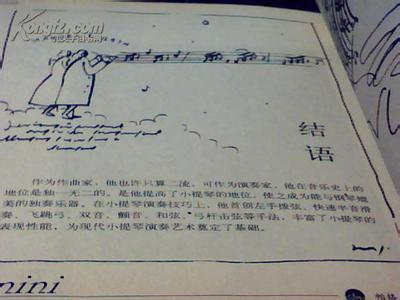 Kongfz.com
结
语
作为作曲家，他也许只算二流，可作为演奏家，他在音乐史上的
地位是独一无二的。是他提高了小提琴的地位，使之成为能与钢琴媲
美的独奏乐器。在小提琴演奏技巧上，他首创左手拨弦、快速半音滑
奏、飞跳弓、双音、颤音、和弦、弓杆击弦等手法，丰富了小提琴的
表现性能，为现代小提琴演奏艺术奠定了基础。
nini